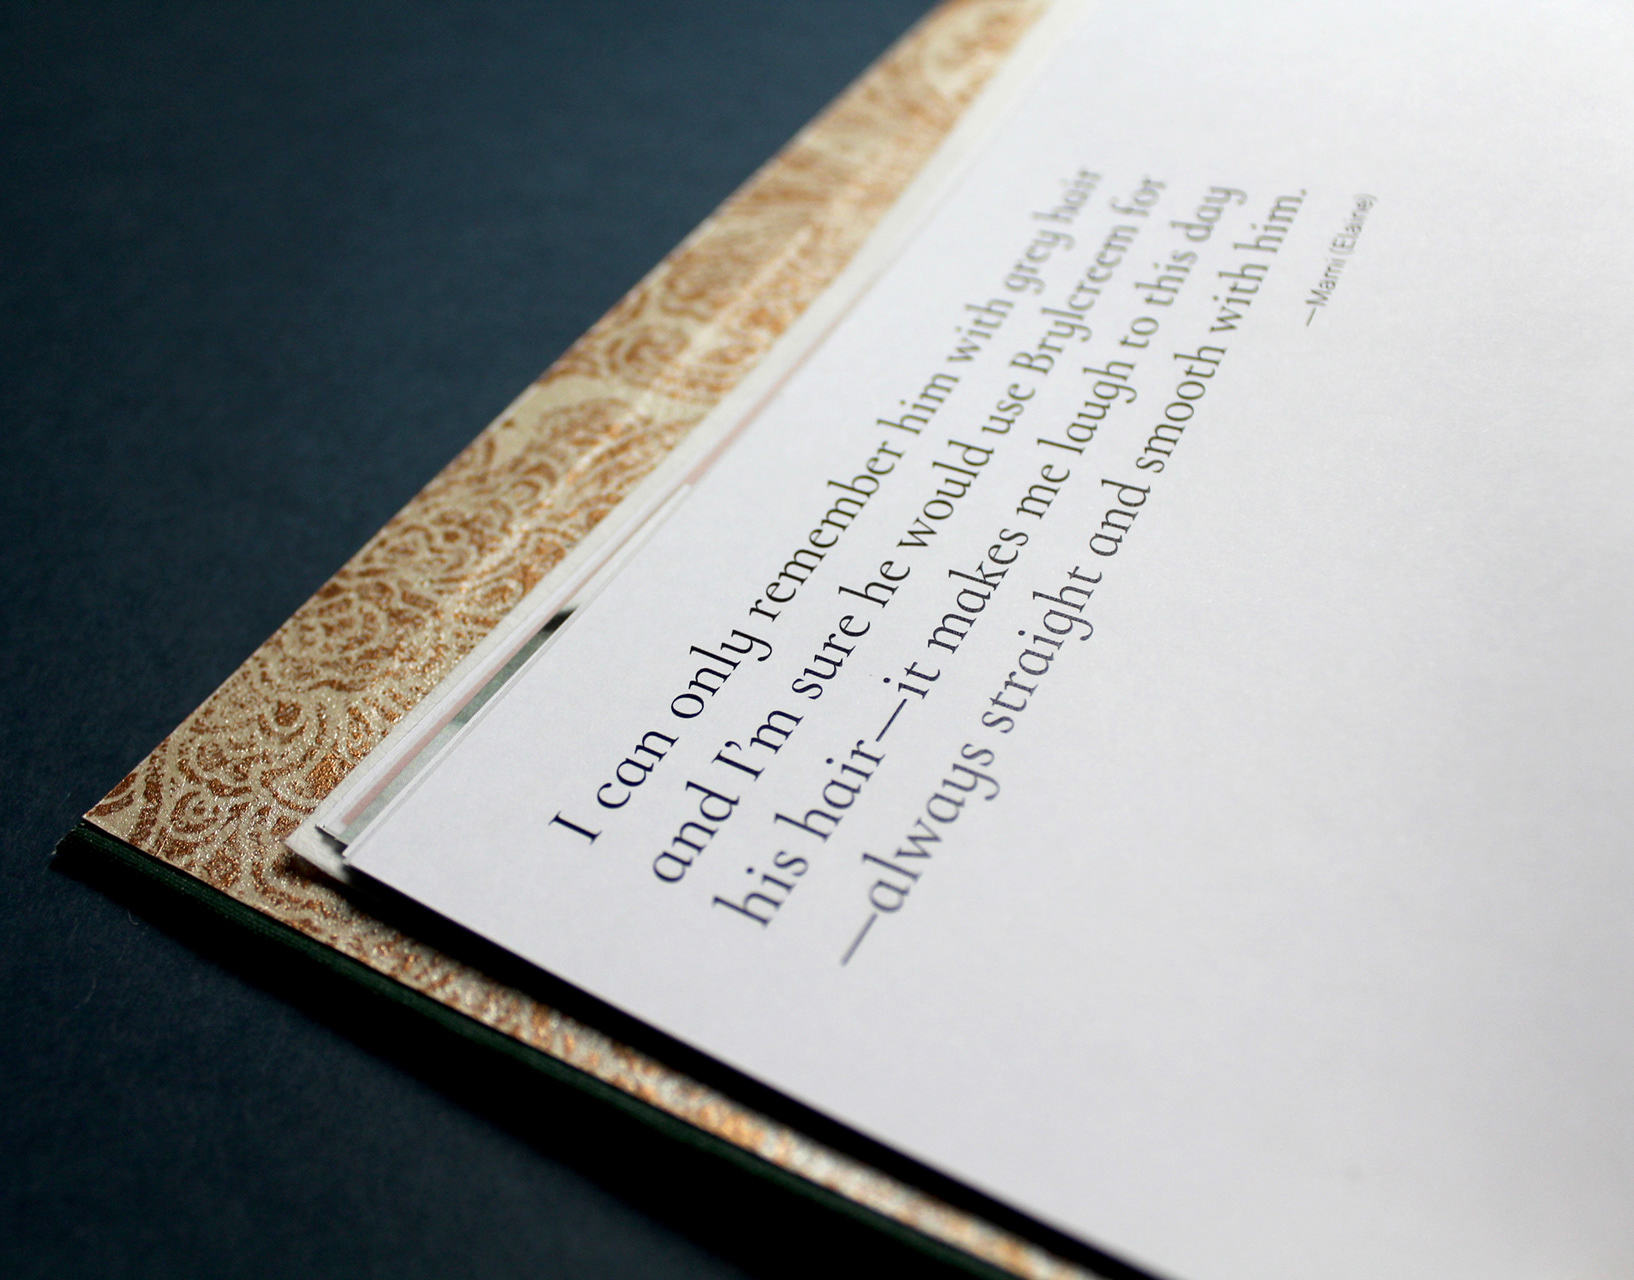 I can only remember him with grey hair
and I'm sure he would use Brylcreem for
his hair—it makes me laugh to this day
—always straight and smooth with him.
—Marni (Elaine)